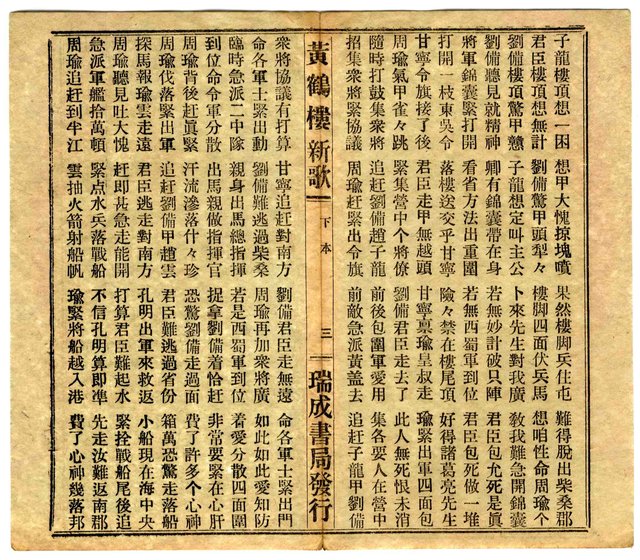 子龍樓頂想一困 想甲大愧掠塊噴 果然樓脚兵住屯 難得脫出柴桑郡
君臣樓頂想無計 劉備驚甲頭犁々 樓脚四面伏兵馬 想咱性命周瑜个
劉備樓頂驚甲戇 子龍想定叫主公 卜來先生對我廣 教我難急開錦囊
劉備聽見就精神 卿有錦囊帶在身 若無妙計破只陣 君臣包允死是眞
將軍錦囊緊打開 看省方法出重圍 若無西蜀軍到位 君臣包死做一堆
打開一枝東吳令 落樓送交乎甘寧 險々禁在樓尾頂 好得諸葛亮先生
甘寧令旗接了後 君臣走甲無越頭 甘寧禀瑜皇叔走 瑜緊出軍四面包
周瑜氣甲雀々跳 緊集營中个將僚 劉備君臣走去了 此人無死恨未消
隨時打鼓集衆將 追赶劉備趙子龍 前後包圍軍愛用 集各要人在營中
招集衆將緊協議 周瑜赶緊出令旗 前敵急派黃蓋去 追赶子龍甲劉備
黃鶴樓新歌 下本 三 瑞成書局發行
衆將協議有打算 甘寧追赶對南方 劉備君臣走無遠 命各軍士緊出門
命各軍士緊出動 劉備難逃過柴桑 周瑜再加衆將廣 如此如此愛知防
臨時急派二中隊 親身出馬總指揮 若是西蜀軍到位 着愛分散四面圍
到位命令軍分散 出馬親做指揮官 捉拿劉備着恰赶 非常要緊在心肝
周瑜背後赶眞緊 汗流滲落什々珍 恐驚劉備走過面 費了許多个心神
周瑜伐落緊出軍 追赶劉備甲趙雲 君臣難逃過省份 箱萬恐驚走落船
探馬報瑜雲走遠 君臣逃走對南方 孔明出軍來救返 小船現在海中央
周瑜聽見吐大愧 赶即甚急走能開 打算君臣難起水 緊拴戰船尾後追
急派軍艦拾萬頓 緊點水兵落戰船 不信孔明算即準 先走汝難返南郡
周瑜追赶到半江 雲抽火箭射船帆 瑜緊將船越入港 費了心神幾落邦